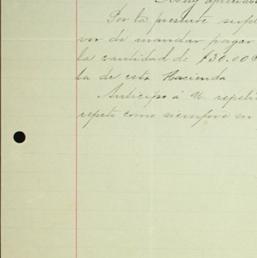 Por la presente supli
vor de mandar pagar
la cantidad de $30.00
ta de esta Hacienda
Anticipo á U. repeti
repito como siempre su